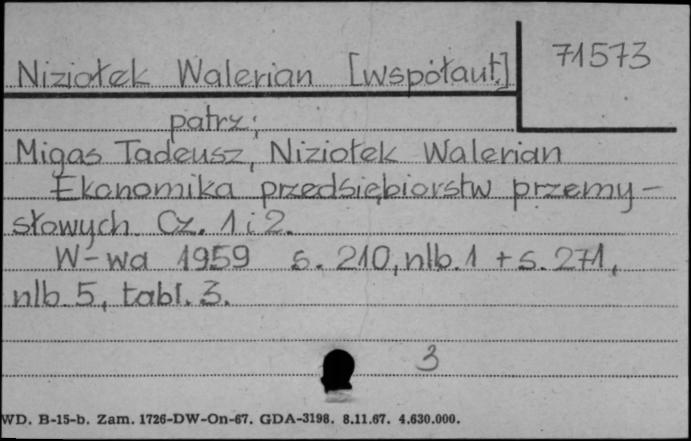 Niziołek Walerian [współaut.]
71573
patrz:
Migas Tadeusz, Niziołek Walerian
Ekonomika przedsiębiorstw przemy-
słowych. Cz. 1 i 2.
W-wa 1959 s. 210, nlb. 1 + s. 271,
nlb. 5, tabl. 3.
3
WD. B-15-b. Zam. 1726-DW-On-67. GDA-3198. 8.11.67. 4.630.000.